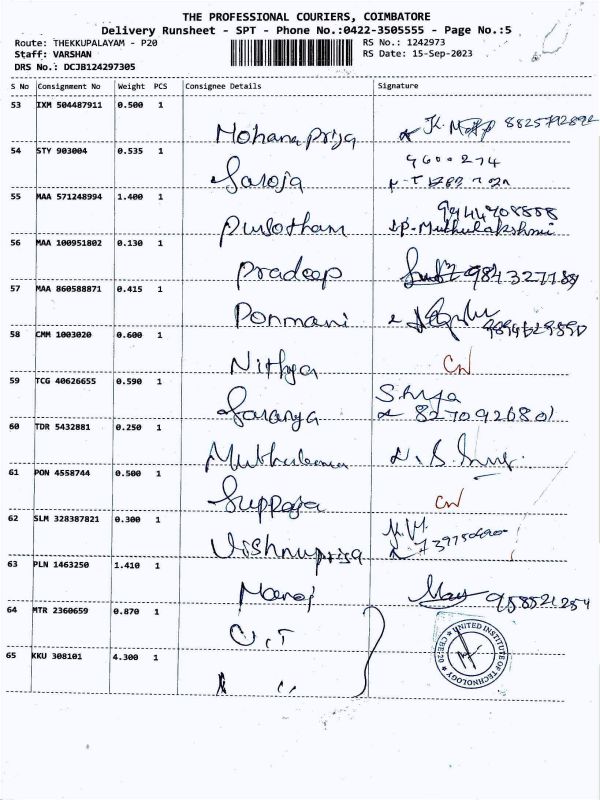 THE PROFESSIONAL COURIERS, COIMBATORE
Delivery Runsheet - SPT - Phone No.:0422-3505555 - Page No.:5
Route: THEKKUPALAYAM - P20 RS No.: 1242973
Staff: VARSHAN RS Date: 15-Sep-2023
DRS No.: DCJB124297305
S No Consignment No Weight PCS Consignee Details Signature
53 IXM 504487911 0.500 1
Mohanapriya
54 STY 903004 0.535 1
Saroja
55 MAA 571248994 1.400 1
Pursotham P. Muthulakshmi
56 MAA 100951802 0.130 1
Pradeep
57 MAA 860588871 0.415 1
Ponmani
58 CMM 1003020 0.600 1
Nithya CN
59 TCG 40626655 0.590 1
Saranya 8270926801
60 TDR 5432881 0.250 1
61 PON 4558744 0.500 1
CN
62 SLM 328387821 0.300 1
Vishnupriya
63 PLN 1463250 1.410 1
Manoj 958521254
64 MTR 2360659 0.870 1
U.T
65 KKU 308101 4.300 1
UNITED INSTITUTE OF TECHNOLOGY
CBE-20